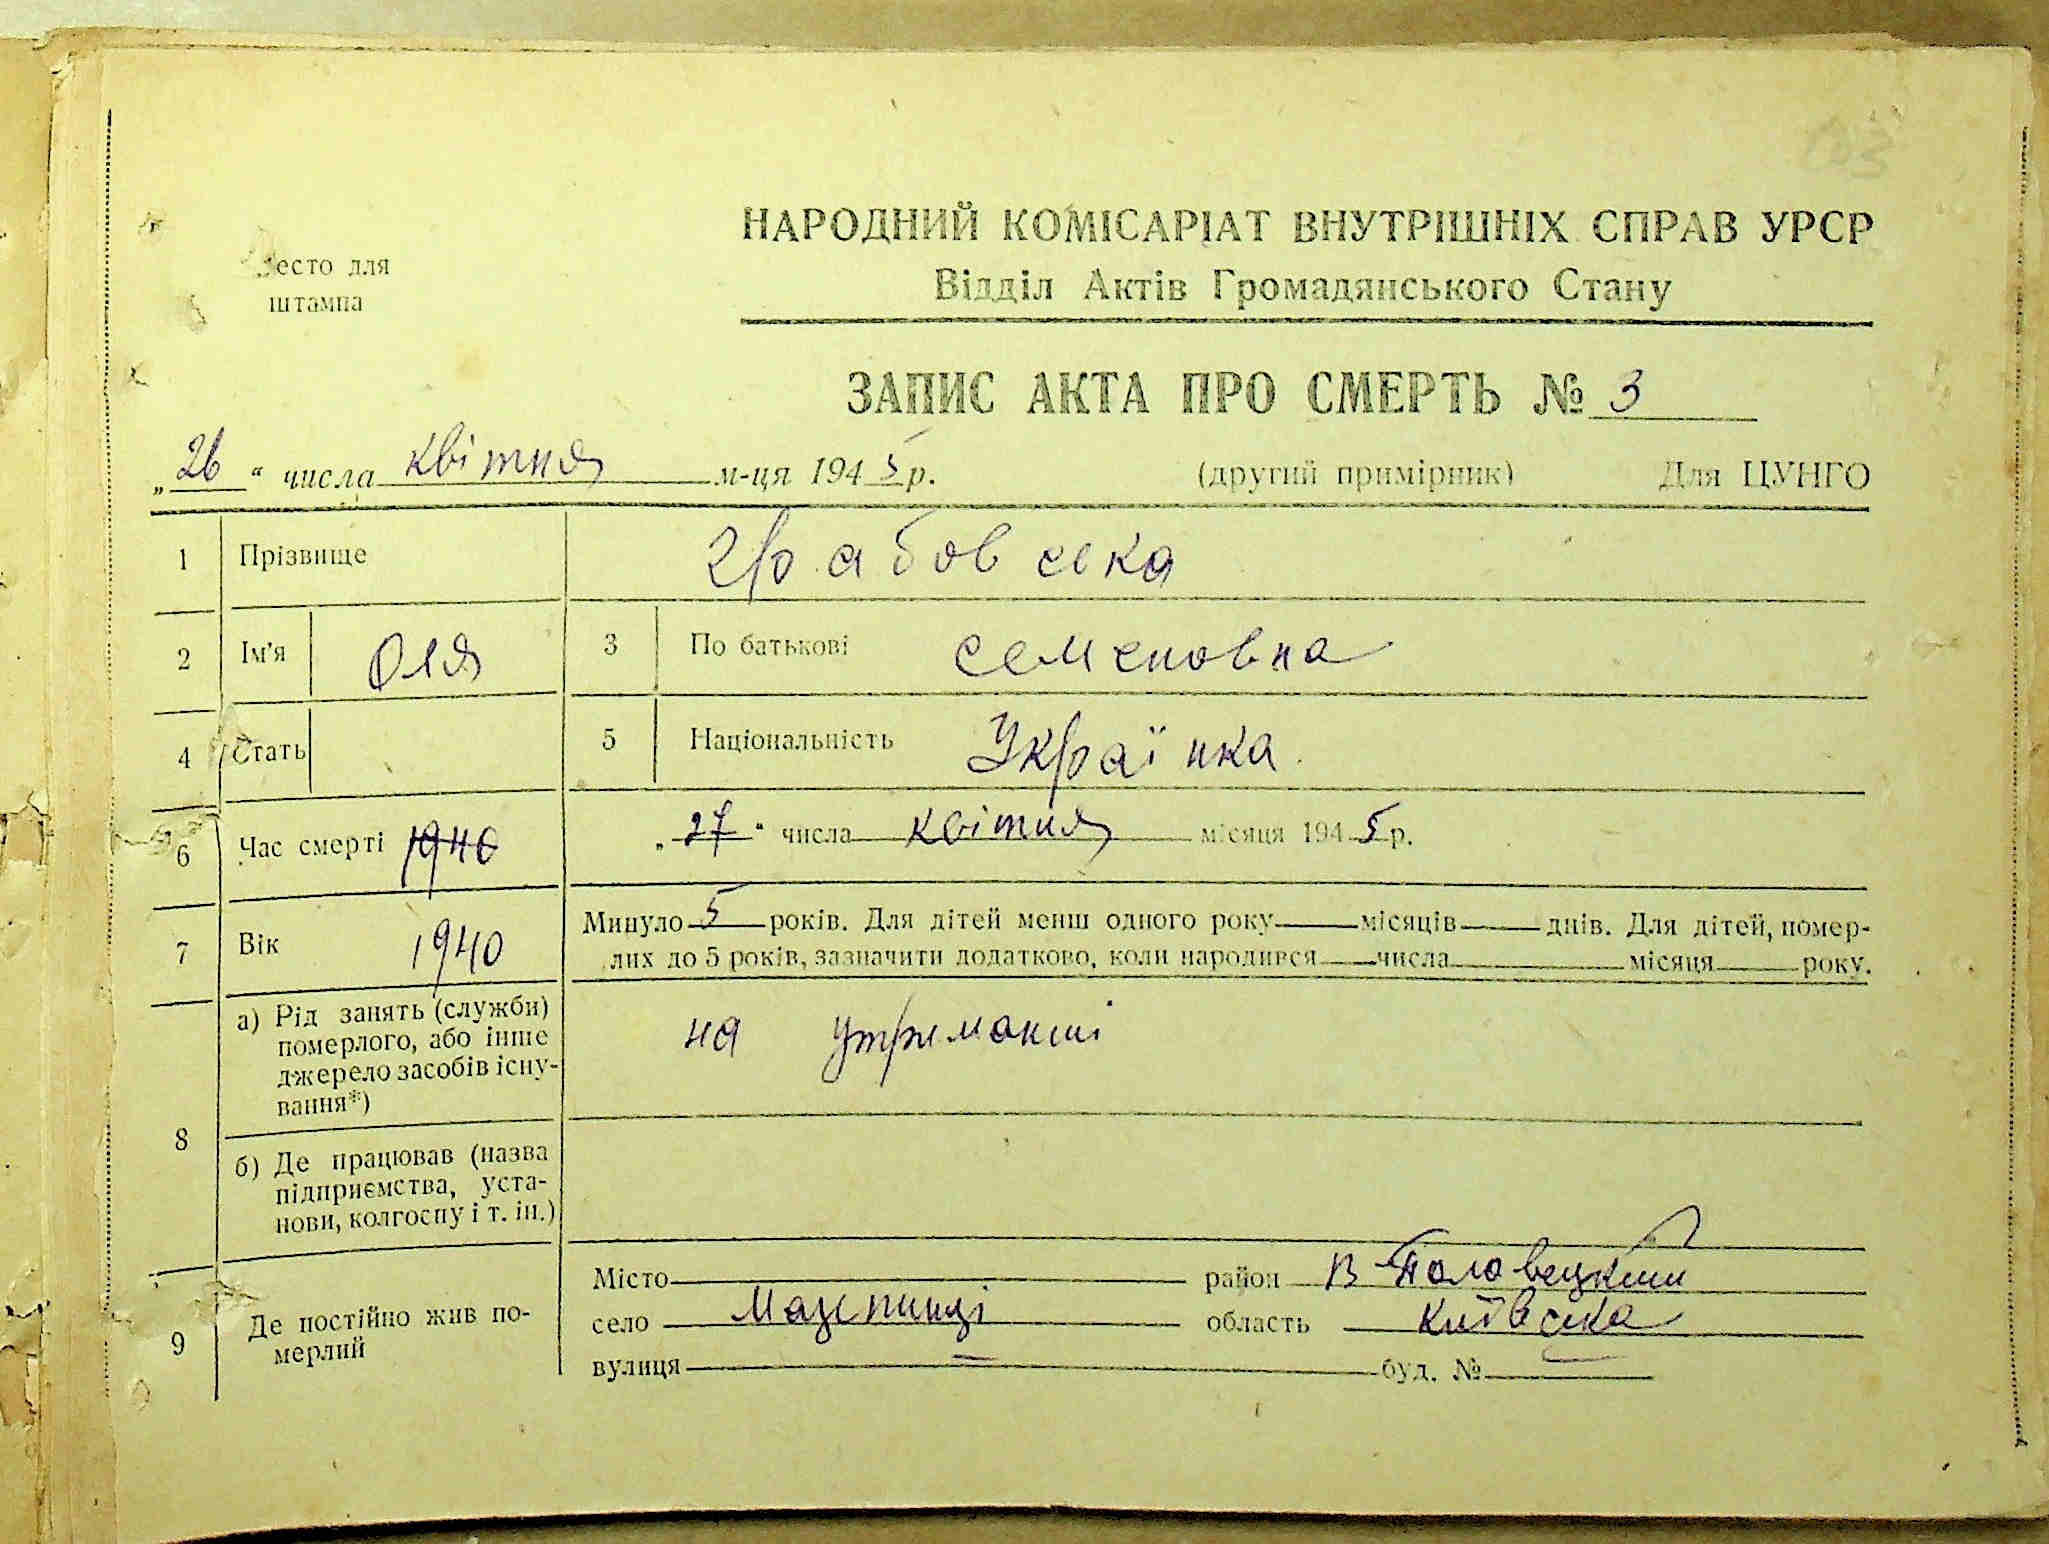 НАРОДНИЙ КОМІСАРІАТ ВНУТРІШНІХ СПРАВ УРСР
Відділ Актів Громадянського Стану
Место для
штампа
ЗАПИС АКТА ПРО СМЕРТЬ № 3
„26“ числа квітня м-ця 1945 р. (другий примірник) Для ЦУНГО
1 Прізвище Грабовська
2 Ім'я Оля 3 По батькові Семеновна
4 Стать 5 Національність Українка
6 Час смерті 1940 „27“ числа квітня місяця 1945 р.
7 Вік 1940 Минуло 5 років. Для дітей менш одного року місяців днів. Для дітей, помер-
лих до 5 років, зазначити додатково, коли народився числа місяця року.
8 а) Рід занять (служби)
померлого, або інше
джерело засобів існу-
вання*)
на утриманні
б) Де працював (назва
підприємства, уста-
нови, колгоспу і т. ін.)
9 Де постійно жив по-
мерлий
Місто район В Половецький
село Мазепинці область Київська
вулиця буд. №